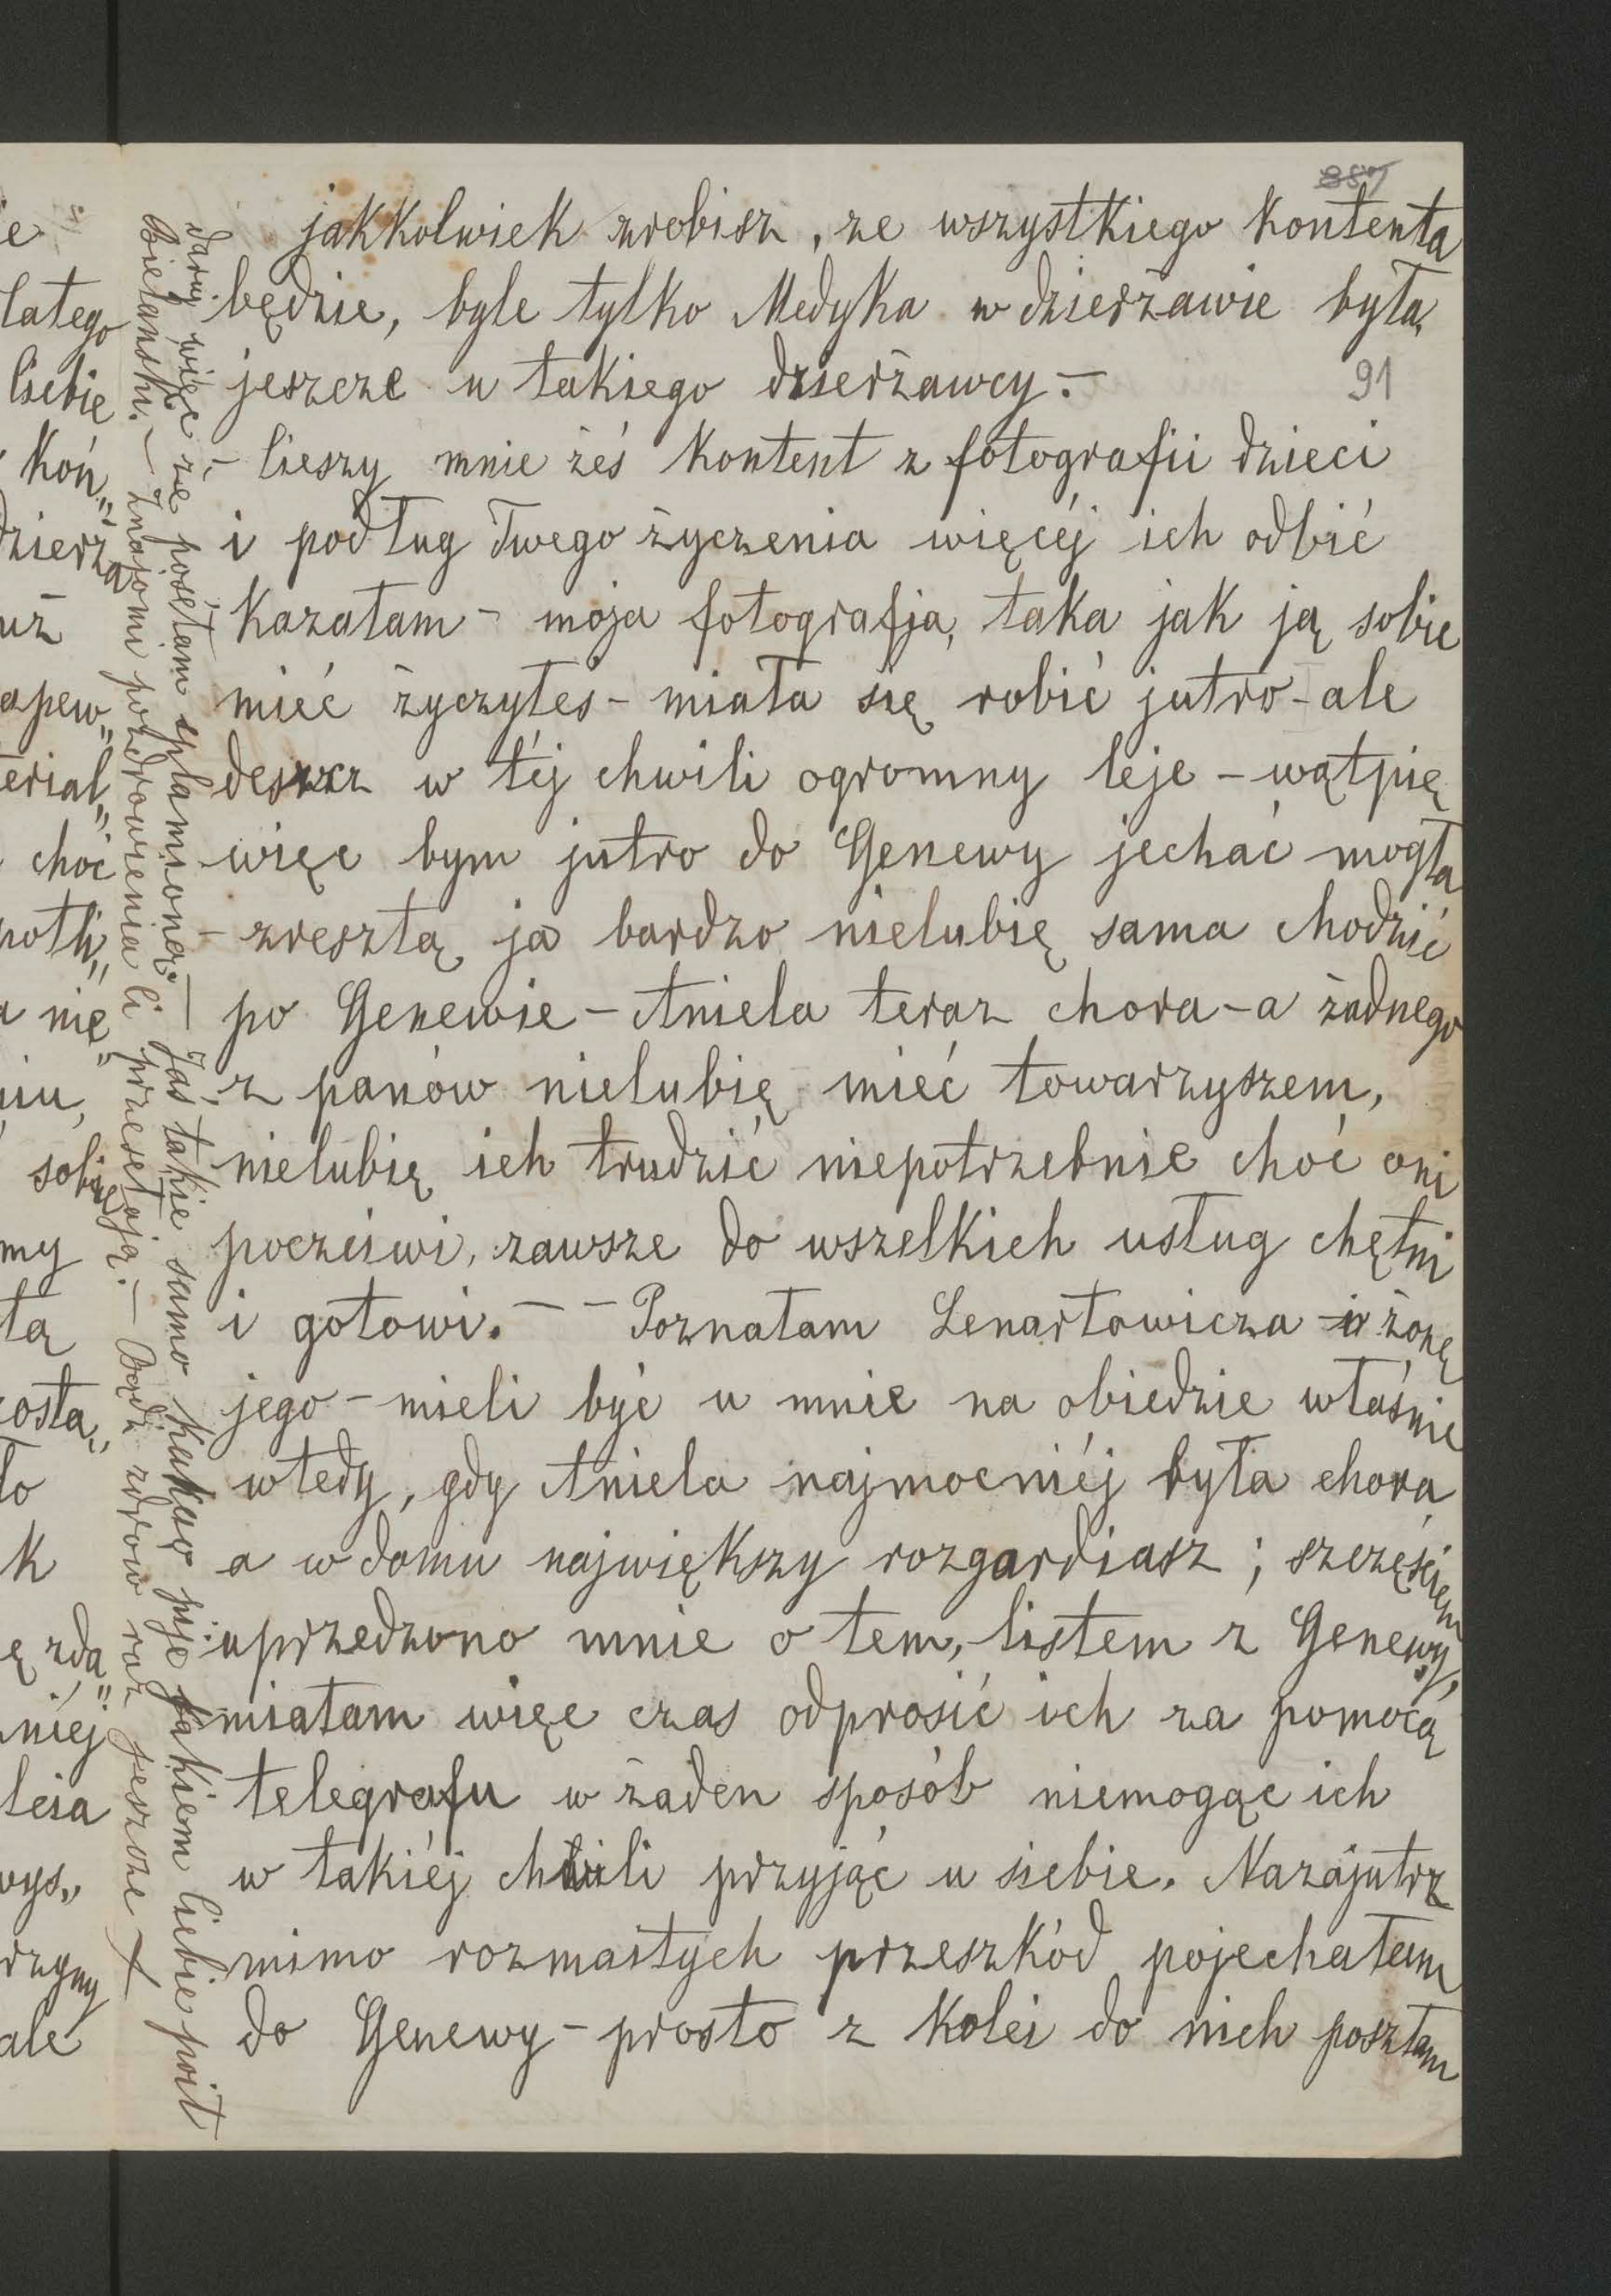 887
jakkolwiek zrobisz, ze wszystkiego kontenta
będzie, byle tylko Medyka w dzierżawie była,
jeszcze u takiego dzierżawcy. –
91
– Cieszy mnie żeś kontent z fotografii dzieci
i podług Twego życzenia więcéj ich odbić
kazałam – moja fotografja, taka jak ją sobie
mieć życzyłeś – miała się robić jutro – ale
deszcz w téj chwili ogromny leje – wątpię
więc bym jutro do Genewy jechać mogła
– zresztą ja bardzo nielubię sama chodzić
po Genewie – Aniela teraz chora – a żadnego
z panów nielubię mieć towarzyszem,
nielubię ich trudzić niepotrzebnie choć oni
poczciwi, zawsze do wszelkich usług chętni
i gotowi. – – Poznałam Lenartowicza i żonę
jego – mieli być u mnie na obiedzie właśnie
wtedy, gdy Aniela najmocniéj była chora
a w domu największy rozgardiasz; szczęściem
uprzedzono mnie o tem, listem z Genewy,
miałam więc czas odprosić ich za pomocą
telegrafu w żaden sposób niemogąc ich
w takiéj chwili przyjąć u siebie. Nazajutrz
mimo rozmaitych przeszkód pojechałam
do Genewy – prosto z kolei do nich poszłam
Daruj więc że posełam splamioną. – Jaś takie samo kakao pije jakiem Ciebie poił
Bielański. – Znajomi pozdrowienia Ci przesełają. – Bądź zdrów raz jeszcze
ie
latego
Ciebie
koń„
dzierża
uż
apew„
terial„
choć
potli„
a nie„
niu,
sobie
my
tą
zosta„
to
k
ę zda„
niéj
leia
wys„
rzymy
ale